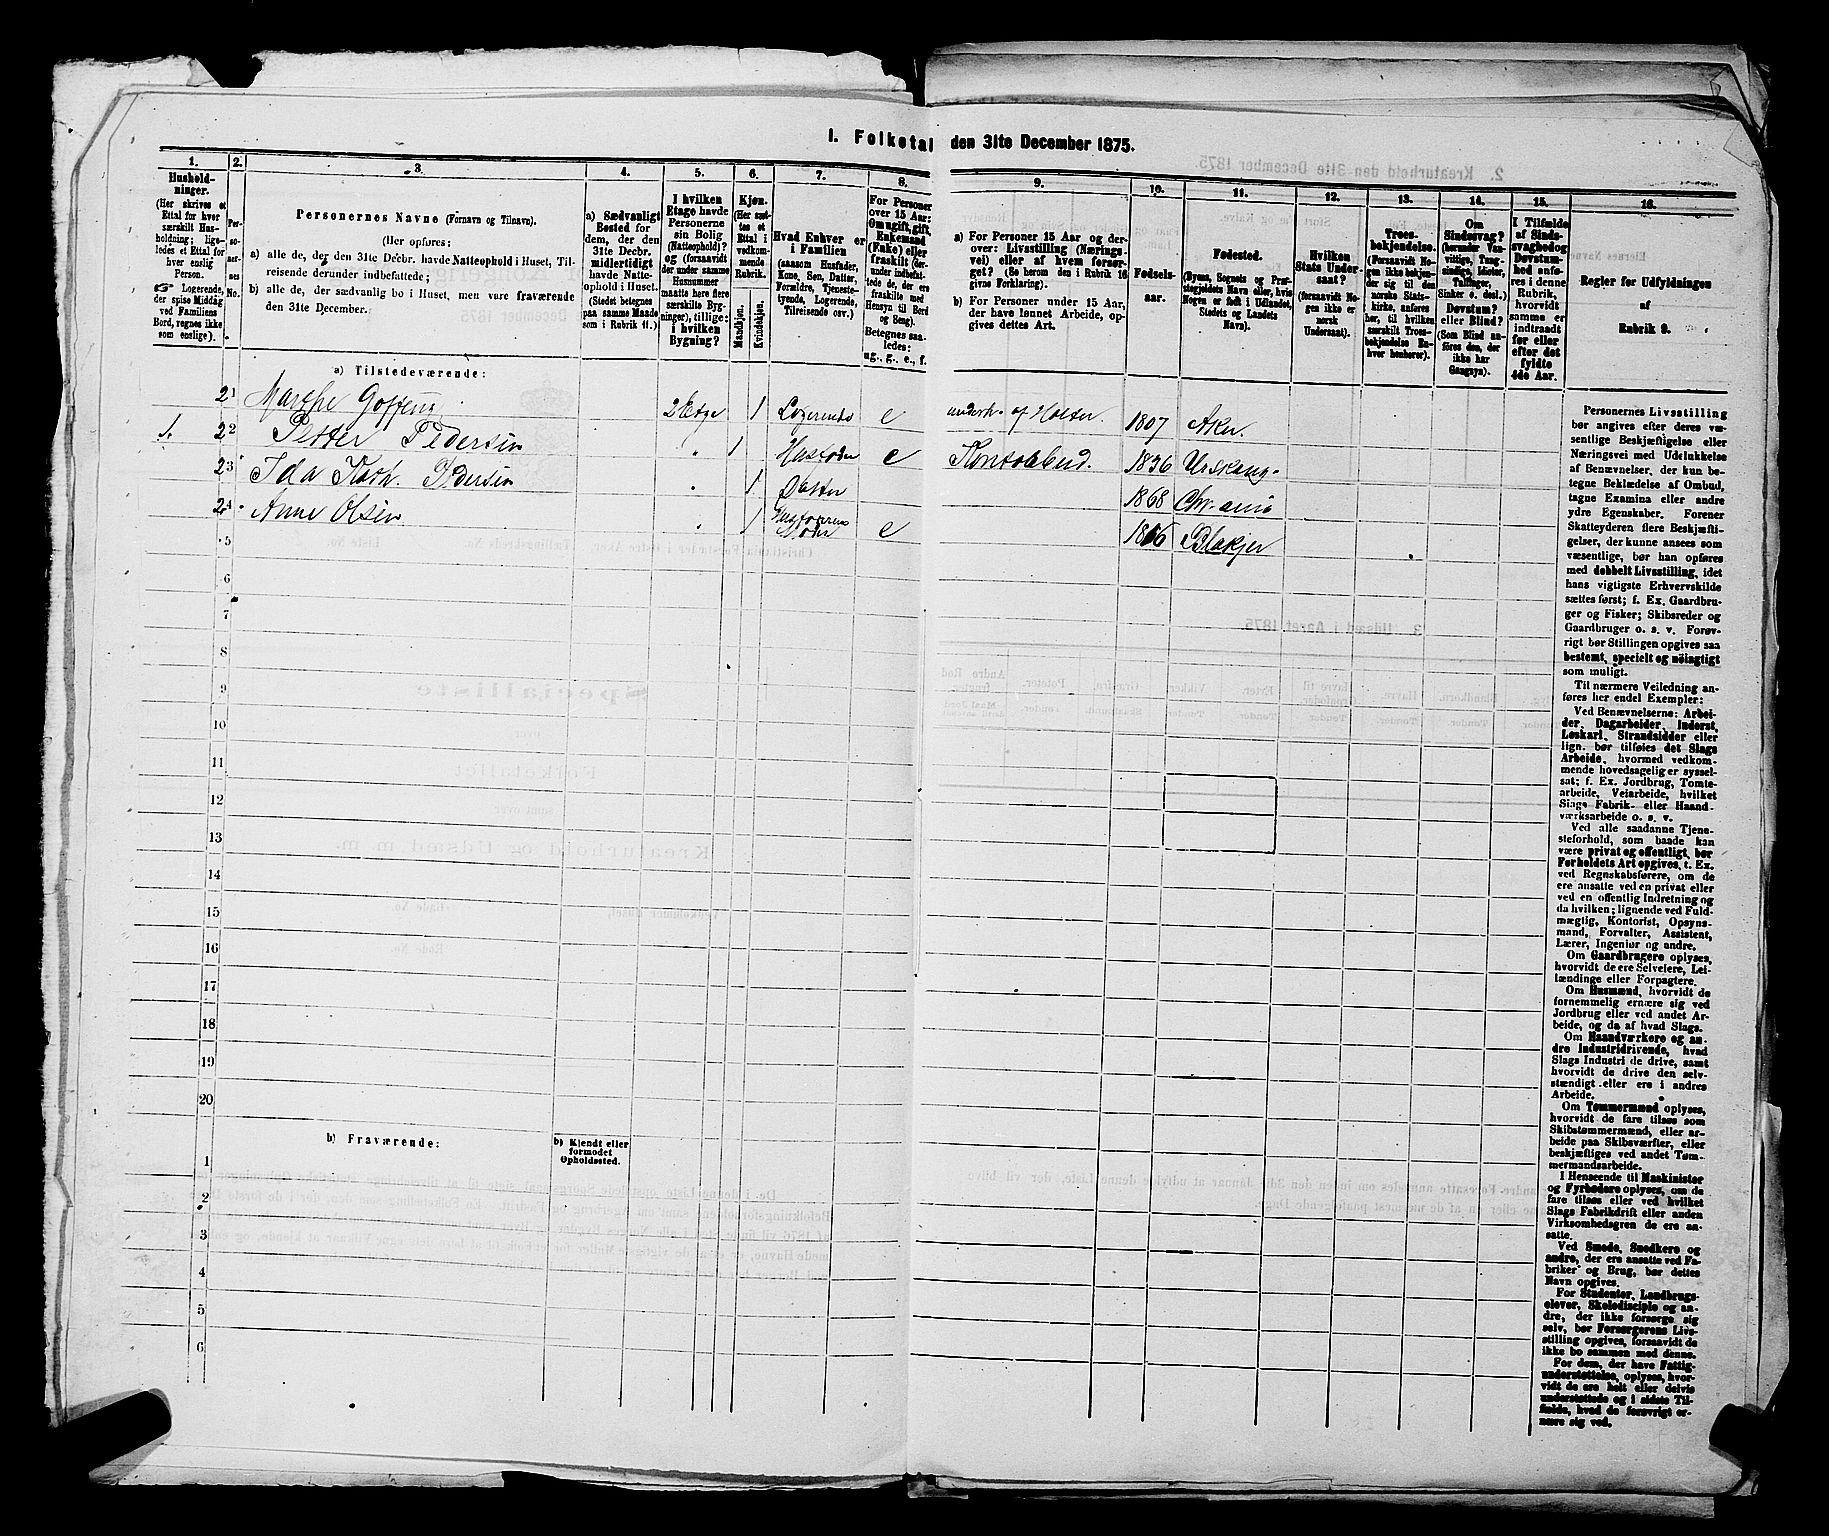 I. Folketal den 31te December 1875.
1. 2. 3. 4. 5. 6. 7. 8. 9. 10. 11. 12. 13. 14. 15. 16.
Husholdninger.
(Her skrives et Ettal for hver særskilt Husholdning; ligeledes et Ettal for hver enslig Person.
Logerende, der spise Middag ved Familiens Bord, regnes ikke som enslige).
Personernes No.
Personernes Navne (Fornavn og Tilnavn).
(Her opføres:
a) alle de, der den 31te Decbr. havde Natteophold i Huset, Tilreisende derunder indbefattede;
b) alle de, der sædvanlig bo i Huset, men vare fraværende den 31te December.
a) Sædvanligt Bosted for dem, der den 31te Decbr. midlertidigt havde Natteophold i Huset.
(Stedet betegnes paa samme Maade som i Rubrik 11.)
I hvilken Etage havde Personerne sin Bolig (Natteophold)? og (forsaavidt der under samme Husnummer maatte være flere særskilte Bygninger), tillige: i hvilken Bygning?
Kjøn. (Her sættes et Ettal i vedkommende Rubrik.
Mandkjøn. Kvindekjøn.
Hvad Enhver er i Familien
(saasom Husfader, Kone, Søn, Datter, Forældre, Tjenestetyende, Logerende, Tilreisende osv.)
For Personer over 15 Aar: Om ugift, gift, Enkemand (Enke) eller fraskilt (herunder indbefattede de, der ere fraskilte med Hensyn til Bord og Seng).
Betegnes saaledes: ug., g., e., f.
a) For Personer 15 Aar og derover: Livsstilling (Næringsvei) eller af hvem forsørget? (Se herom den i Rubrik 16 givne Forklaring).
b) For Personer under 15 Aar, der have lønnet Arbeide, opgives dettes Art.
Fødselsaar.
Fødested.
(Byens, Sognets og Præstegjeldets Navn eller, hvis Nogen er født i Udlandet, Stedets og Landets Navn).
Hvilken Stats Undersaat?
(forsaavidt Nogen ikke er norsk Undersaat).
Troesbekjendelse.
(Forsaavidt Nogen ikke bekjender sig til den norske Statskirke, anføres her, til hvilken særskilt Troesbekjendelse Enhver henhører).
Om Sindssvag? (herunder Vanvittige, Tungsindige, Idioter, Tullinger, Sinker o. desl.) Døvstum? eller Blind? (Som Blind anføres den, der ikke har Gangsyn).
I Tilfælde af Sindssvaghed og Døvstumhed anføres i denne Rubrik, hvorvidt samme er indtraadt før eller efter det fyldte 4de Aar.
Regler for Udfyldningen af Rubrik 9.
a) Tilstedeværende:
2 1 Marthe 2 Etge 1 Logerende e 1807 Aker.
1. 2 2 Petter Pedersen " 1 Husfader e Kontorbud. 1836 Urskoug
2 3 Ida Kath. Pedersen " 1 Datter 1868 Chr.ania
2 4 Anne Olsen " 1 Husfaderens Moder e Blakjer
5
6
7
8
9
10
11
12
13
14
15
16
17
18
19
20
b) Fraværende:
b) Kjendt eller formodet Opholdssted.
1
2
3
4
5
6
Personernes Livsstilling
bør angives efter deres væ-
sentlige Beskjæftigelse eller
Næringsvei med Udelukkelse
af Benævnelser, der kun be-
tegne Beklædelse af Ombud,
tagne Examina eller andre
ydre Egenskaber. Forener
Skatteyderen flere Beskjæfti-
gelser, der kunne ansees som
væsentlige, bør han opføres
med dobbelt Livsstilling, idet
hans vigtigste Erhvervskilde
sættes først; f. Ex. Gaardbru-
ger og Fisker; Skibsreder og
Gaardbruger o. s. v. Forøv-
rigt bør Stillingen opgives saa
bestemt, specielt og nöiagtigt
som muligt.
Til nærmere Veiledning an-
føres her endel Exempler:
Ved Benævnelserne: Arbei-
der, Dagarbeider, Inderst,
Løskarl, Strandsidder eller
lign. bør tilføies det Slags
Arbeide, hvormed vedkom-
mende hovedsagelig er syssel-
sat; f. Ex. Jordbrug, Tomte-
arbeide, Veiarbeide, hvilket
Slags Fabrik- eller Haand-
værksarbeide o. s. v.
Ved alle saadanne Tjene-
steforhold, som baade kan
være privat og offentligt, bør
Forholdets Art opgives, t. Ex.
ved Regnskabsførere, om de
ere ansatte ved en privat eller
ved en offentlig Indretning og
da hvilken; lignende ved Fuld-
mægtig, Kontorist, Opsyns-
mand, Forvalter, Assistent,
Lærer, Ingeniør og andre.
Om Gaardbrugere oplyses,
hvorvidt de ere Selveiere, Lei-
lændinge eller Forpagtere.
Om Husmænd, hvorvidt de
fornemmelig ernære sig ved
Jordbrug eller ved andet Ar-
beide, og da af hvad Slags.
Om Haandværkere og an-
dre Industridrivende, hvad
Slags Industri de drive, samt
hvorvidt de drive den selv-
stændigt eller ere i andres
Arbeide.
Om Tømmermænd oplyses,
hvorvidt de fare tilsøs som
Skibstømmermænd, eller ar-
beide paa Skibsværfter, eller
beskjæftiges ved andet Tøm-
mermandsarbeide.
I Henseende til Maskinister
og Fyrbødere oplyses, om de
fare tilsøs eller ved hvilket
Slags Fabrikdrift eller anden
Virksomhedsgren de ere an-
satte.
Ved Smede, Snedkere og
andre, der ere ansatte ved Fa-
briker og Brug, bør dettes
Navn opgives.
For Studenter, Landbrugs-
elever, Skoledisciple og an-
dre, der ikke forsørge sig
selv, bør Forsørgerens Livs-
stilling opgives, forsaavidt de
ikke bo sammen med denne.
For dem, der have Fattig-
understøttelse, oplyses, hvor-
vidt de ere helt eller delvis
understøttede og i sidste Til-
fælde, hvad de forøvrigt er-
nære sig ved.